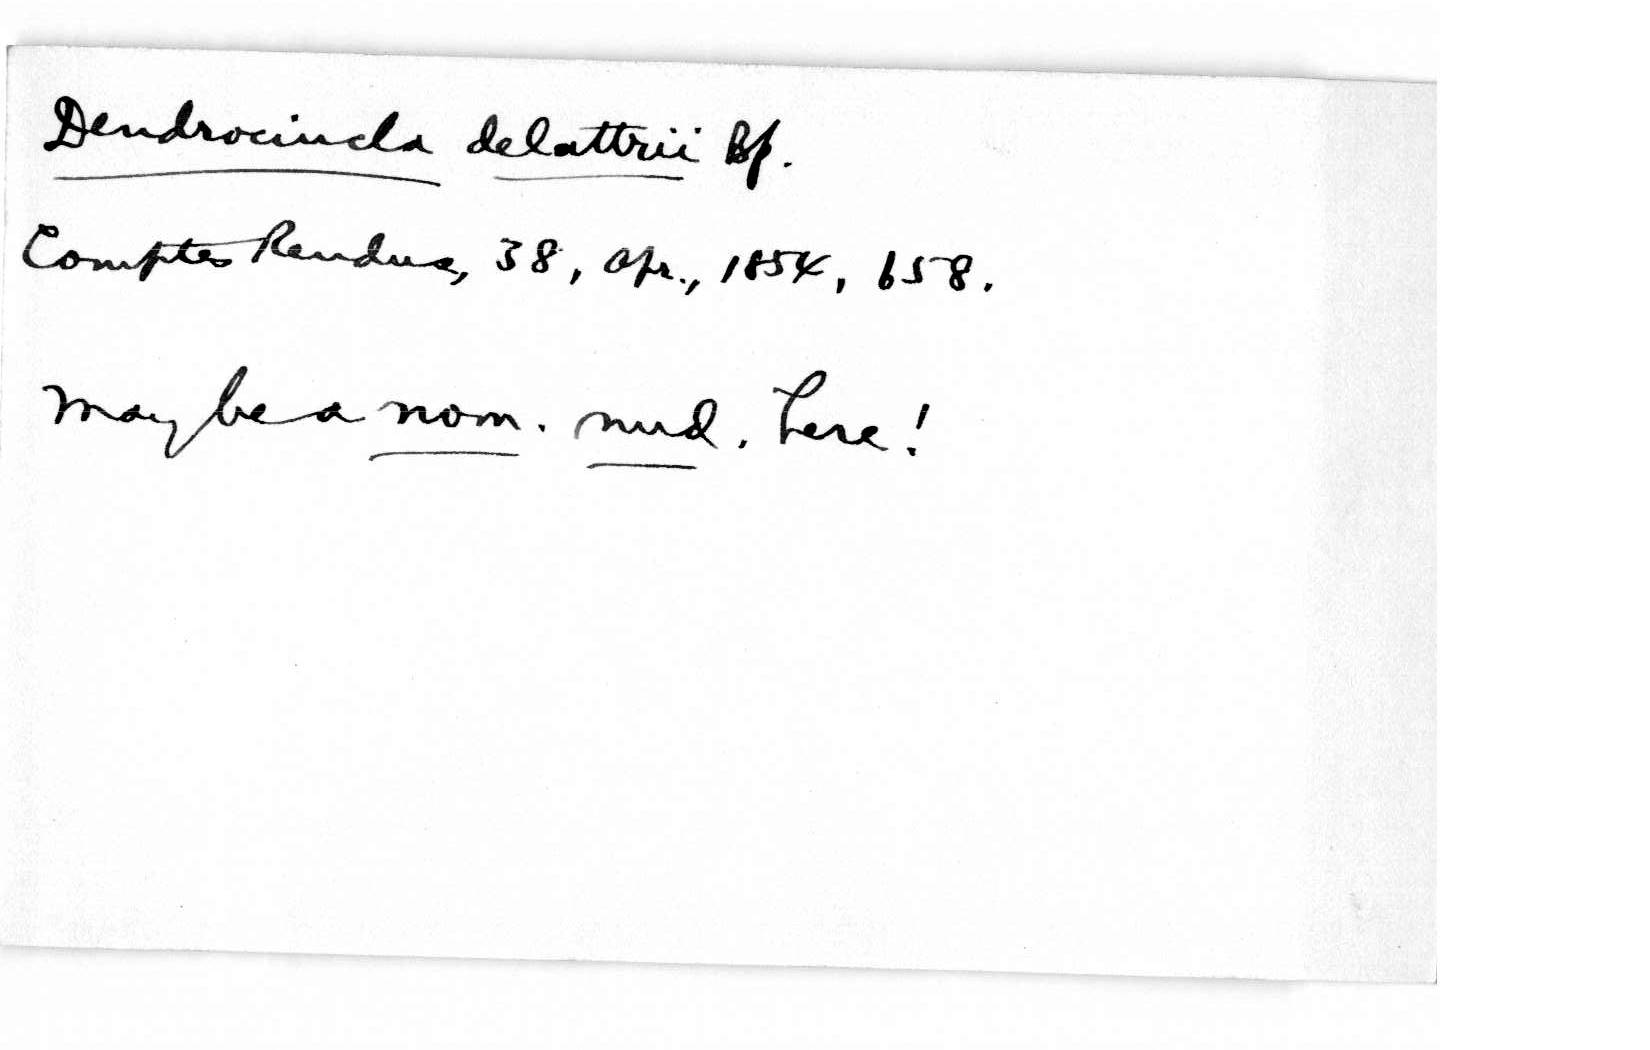 Dendrocincla delattrii Bp.
Comptes Rendus, 38, Apr., 1854, 658.
May be a nom. nud. here!